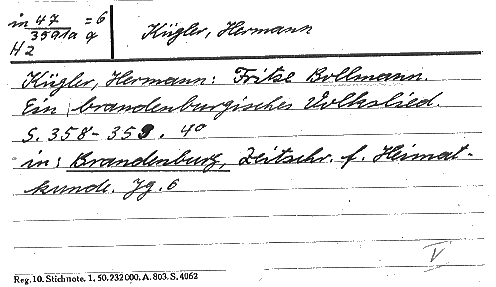 in 47 = 6
3591a q
H2
Kügler, Hermann
Kügler, Hermann: Fritze Bollmann.
Ein brandenburgisches Volkslied.
S. 358-359. 4°
in: Brandenburg, Zeitschr. f. Heimat-
kunde. Jg. 6
V
Reg. 10. Stichnote. 1. 50. 232000. A. 803. S. 4062